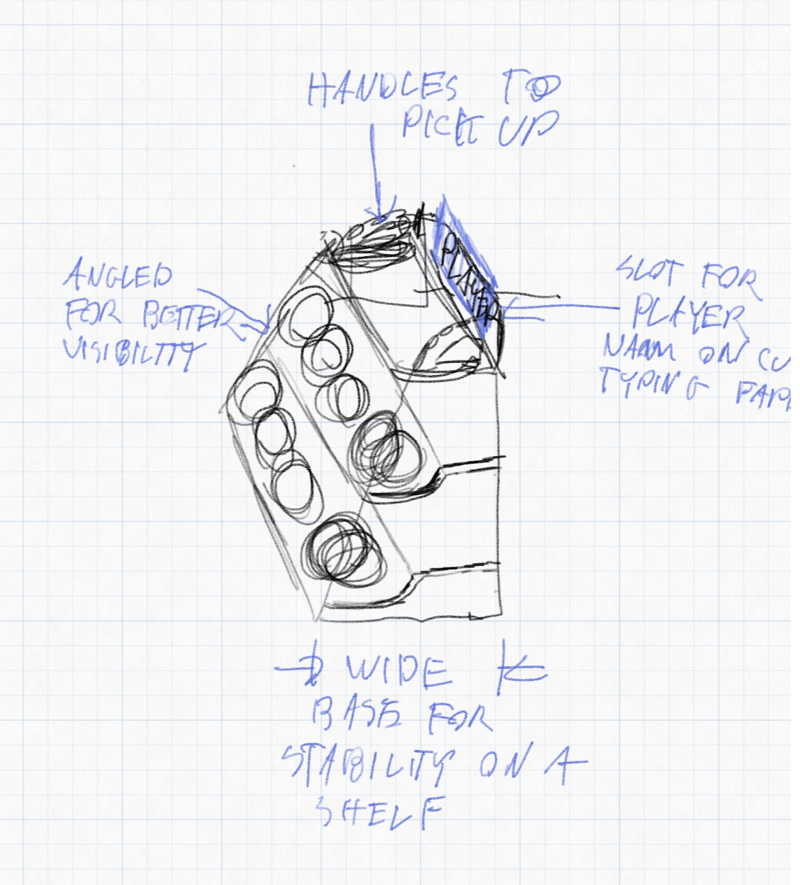 HANDLES TO
PICK UP
PLAYER
ANGLED
FOR BETTER
VISIBILITY
SLOT FOR
PLAYER
ON
TYPING
WIDE
BASE FOR
STABILITY ON A
SHELF